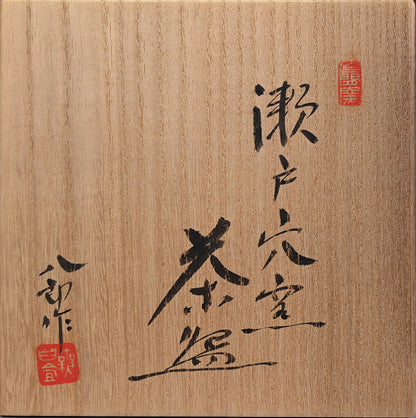 瀬戸穴窯
茶盌
八郎作